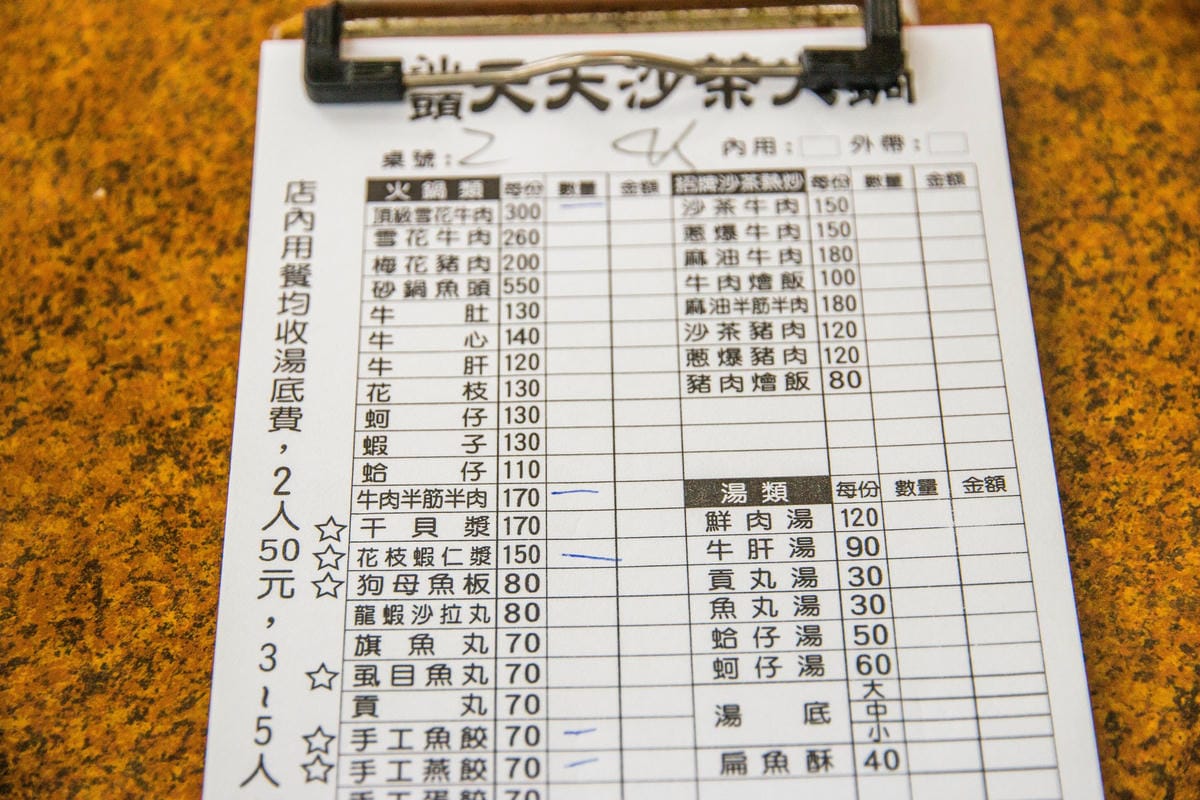 汕頭天天沙茶火鍋
桌號：2 4K 內用： 外帶：
店內用餐均收湯底費，2人50元，3~5人
火鍋類 每份 數量 金額
頂級雪花牛肉 300
雪花牛肉 260
梅花豬肉 200
砂鍋魚頭 550
牛肚 130
牛心 140
牛肝 120
花枝 130
蚵仔 130
蝦子 130
蛤仔 110
牛肉半筋半肉 170
☆干貝漿 170
☆花枝蝦仁漿 150
☆狗母魚板 80
龍蝦沙拉丸 80
旗魚丸 70
☆虱目魚丸 70
貢丸 70
☆手工魚餃 70
☆手工燕餃 70
手工蛋餃 70
招牌沙茶熱炒 每份 數量 金額
沙茶牛肉 150
蔥爆牛肉 150
麻油牛肉 180
牛肉燴飯 100
麻油半筋半肉 180
沙茶豬肉 120
蔥爆豬肉 120
豬肉燴飯 80
湯類 每份 數量 金額
鮮肉湯 120
牛肝湯 90
貢丸湯 30
魚丸湯 30
蛤仔湯 50
蚵仔湯 60
湯底 大
中
小
扁魚酥 40